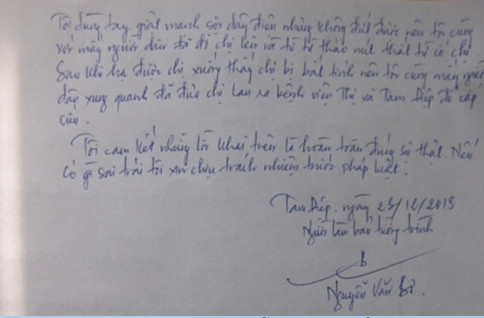 Tôi dùng tay giật mạnh sợi dây điện nhưng không đứt được nên tôi cùng
với mấy người dân đã đỡ chị lên và từ từ tháo nút thắt ở cổ chị
Sau khi hạ được chị xuống thấy chị bị bất tỉnh nên tôi cùng mấy người
dân xung quanh đã đưa chị Lan ra bệnh viện Thị xã Tam Điệp để cấp
cứu.
Tôi cam kết những lời khai trên là hoàn toàn đúng sự thật. Nếu
có gì sai trái tôi xin chịu trách nhiệm trước pháp luật.
Tam Điệp, ngày 25/12/2013
Người làm báo tường trình
Nguyễn Văn